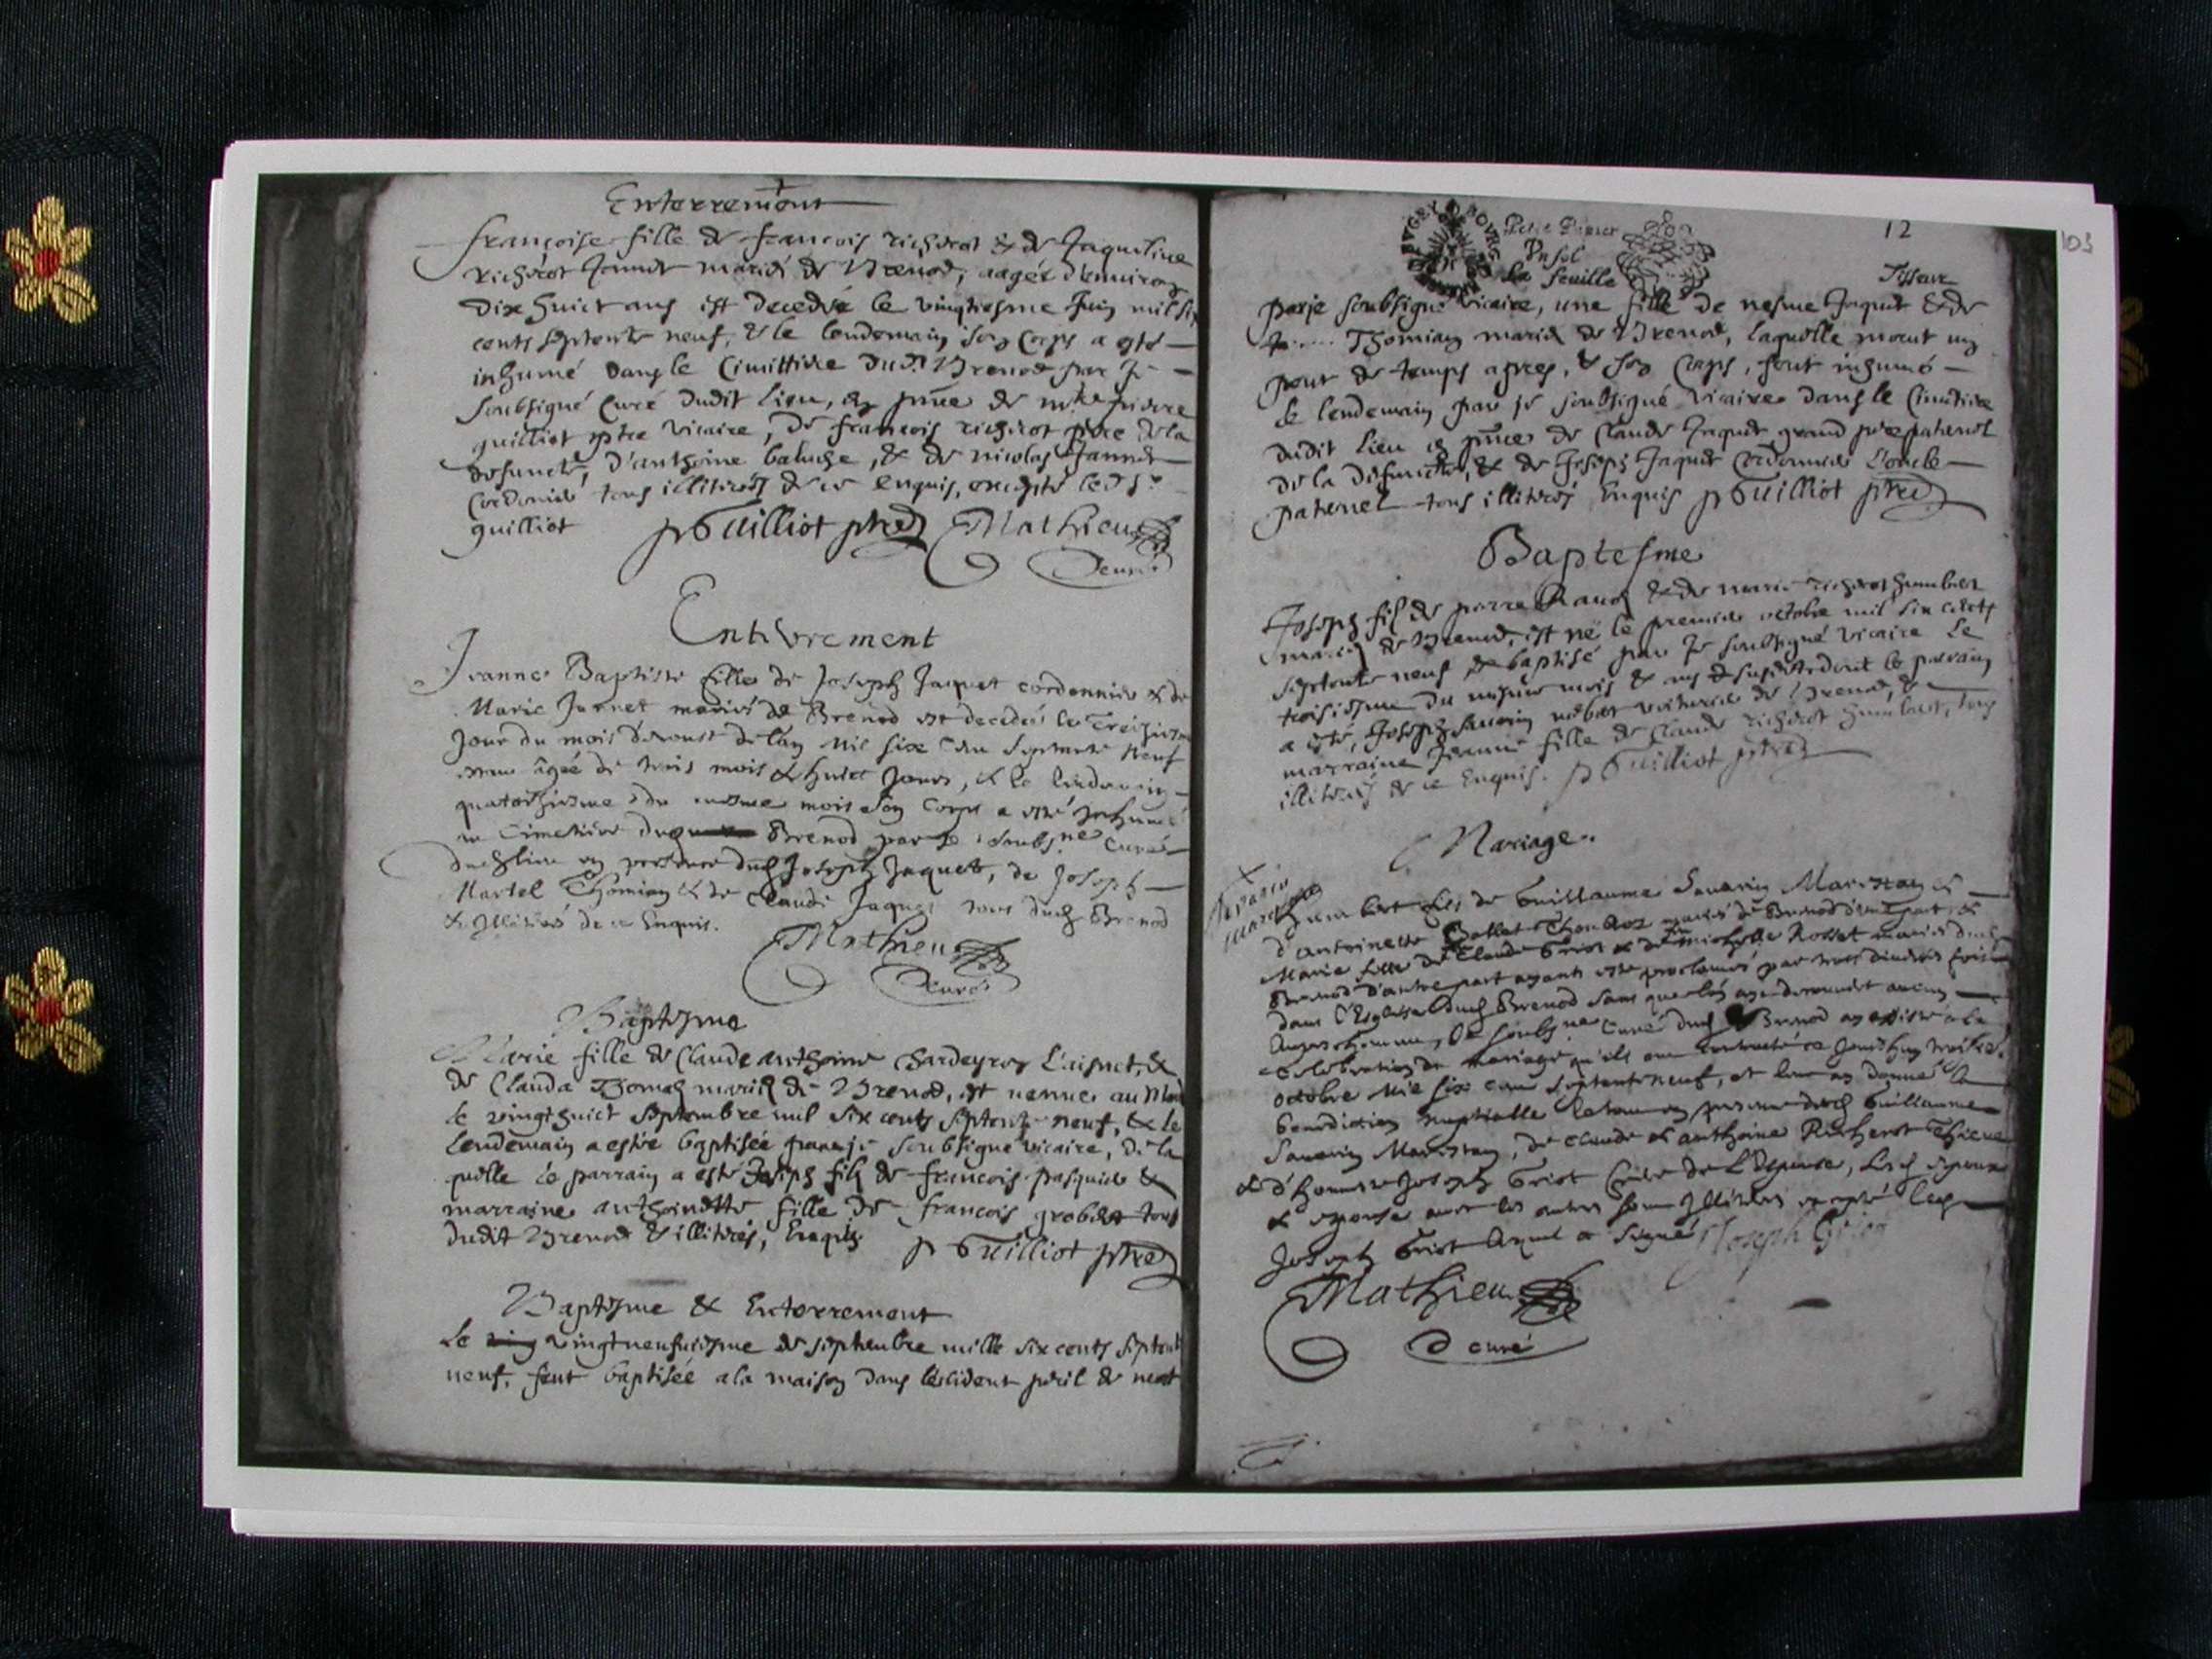 Enterrement
françoise fille de francois richerot & de Jaqueline
richerot Jannet mariés de Brenod, aagée d'environ
dix huict ans est decedée le vingtiesme Juin mil six
cents septante neuf, & le lendemain son corps a esté
inhumé dans le Cimittiere dud. Brenod par je
soubsigné Curé dudit lieu, en pnce de pierre
guilliot ptre vicaire, de francois richerot pere de la
defuncte, d'anthoine baluse, & de nicolas Jannet
Cordonier tous illiterés de ce enquis, excepté led sr
guilliot p Guilliot ptre Mathieu
curé
Enterrement
Jeanne Baptiste fille de Joseph Jaquet cordonnier & de
Marie Jannet mariés de Brenod est decedée le Treiziesme
Jour du mois d'aoust de l'an Mil six Cens Septante Neuf
âgée de trois mois & huict Jours, & le lendemain
quatorziesme du mesme mois son Corps a esté Inhumé
au Cimetiere Brenod par Je soubsne Curé
dud lieu en presence dud Joseph Jaquet, de Joseph
Martel Thomian & de Claude Jaquet tous dud Brenod
& Illiterés de ce Enquis.
Mathieu
Curé
Baptesme
Marie fille de Claude anthoine Chardeyron L'aisnet, &
de Clauda Thomas mariés de Brenod, est nenue au
le vingt huict septembre mil six cents septante neuf, & le
lendemain a estée baptisée par je soubsigné vicaire, de la
quelle le parrain a esté Joseph fils de francois pasquier &
marraine anthoinette fille de francois grobet tous
dudit Brenod & illiterés, Enquis p Guilliot ptre
Baptesme & Enterrement
Le vingtneufuiesme de septembre mille six cents septante
neuf, feut baptisée a la maison dans l'evident peril de mort
12
103
BVGEY
Petit Papier
Un sol
La feuille
Tisseur
par je soubsigné vicaire, une fille de nesme Jaquet & de
Thomian mariés de Brenod, laquelle mourut un
peut de temps apres, & son Corps, feut inhumé
le lendemain par je soubsigné vicaire dans le Cimitiere
dudit lieu en pnce de Claude Jaquet grand pere paternel
de la defuncte, & de Joseph Jaquet Cordonnier L'oncle
paternel tous illiterés Enquis p Guilliot ptre
Baptesme
Joseph fils de pierre & de marie richerot humbert
mariés de Brenod, est né le premier octobre mil six cents
septante neuf & baptisé par Je soubsigné vicaire Le
troisiesme du mesme mois & an susdit dont le parrain
a esté, Joseph Savarin voiturier de Brenod, &
marraine Jeanne fille de Claude richerot humbert, tous
illiterés de ce Enquis. p Guilliot ptre
Mariage.
Savarin
mariage
Humbert fils de Guillaume Savarin Marestan &
d'antoinette Ballet mariés de Brenod d'une part, &
Marie fille de Claude Griot & de Michelle Rosset mariés dud
Brenod d'autre part ayants esté proclamés par trois diverses fois
dans l'Eglise dud Brenod sans que l'on aye descouvert aucun
Empeschement, Je soubsne Curé dud Brenod ay assisté a la
Celebration du mariage qu'ils ont contracté ce Jourdhuy troisie.
octobre Mil six cens septante neuf, et leur ay donné la
benediction nuptialle le tout en presence dud Guillaume
Savarin Marestan, de Claude & anthoine Richerot
& d'honneste Joseph Griot frere de L'Espouse, Lesd Espoux
& espouse avec les autres sont Illiterés excepté led
Joseph Griot lequel a signé Joseph Griot
Mathieu
curé